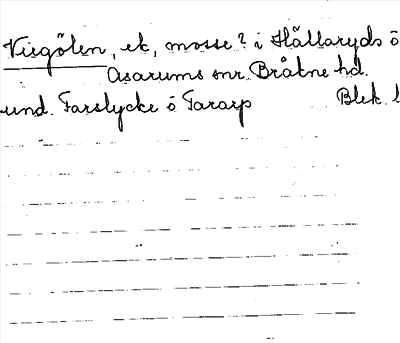 Viegölen, ek, mosse? i Hällaryds o
Asarums snr. Bräkne hd.
und. Farslycke o Tararp Blek. l